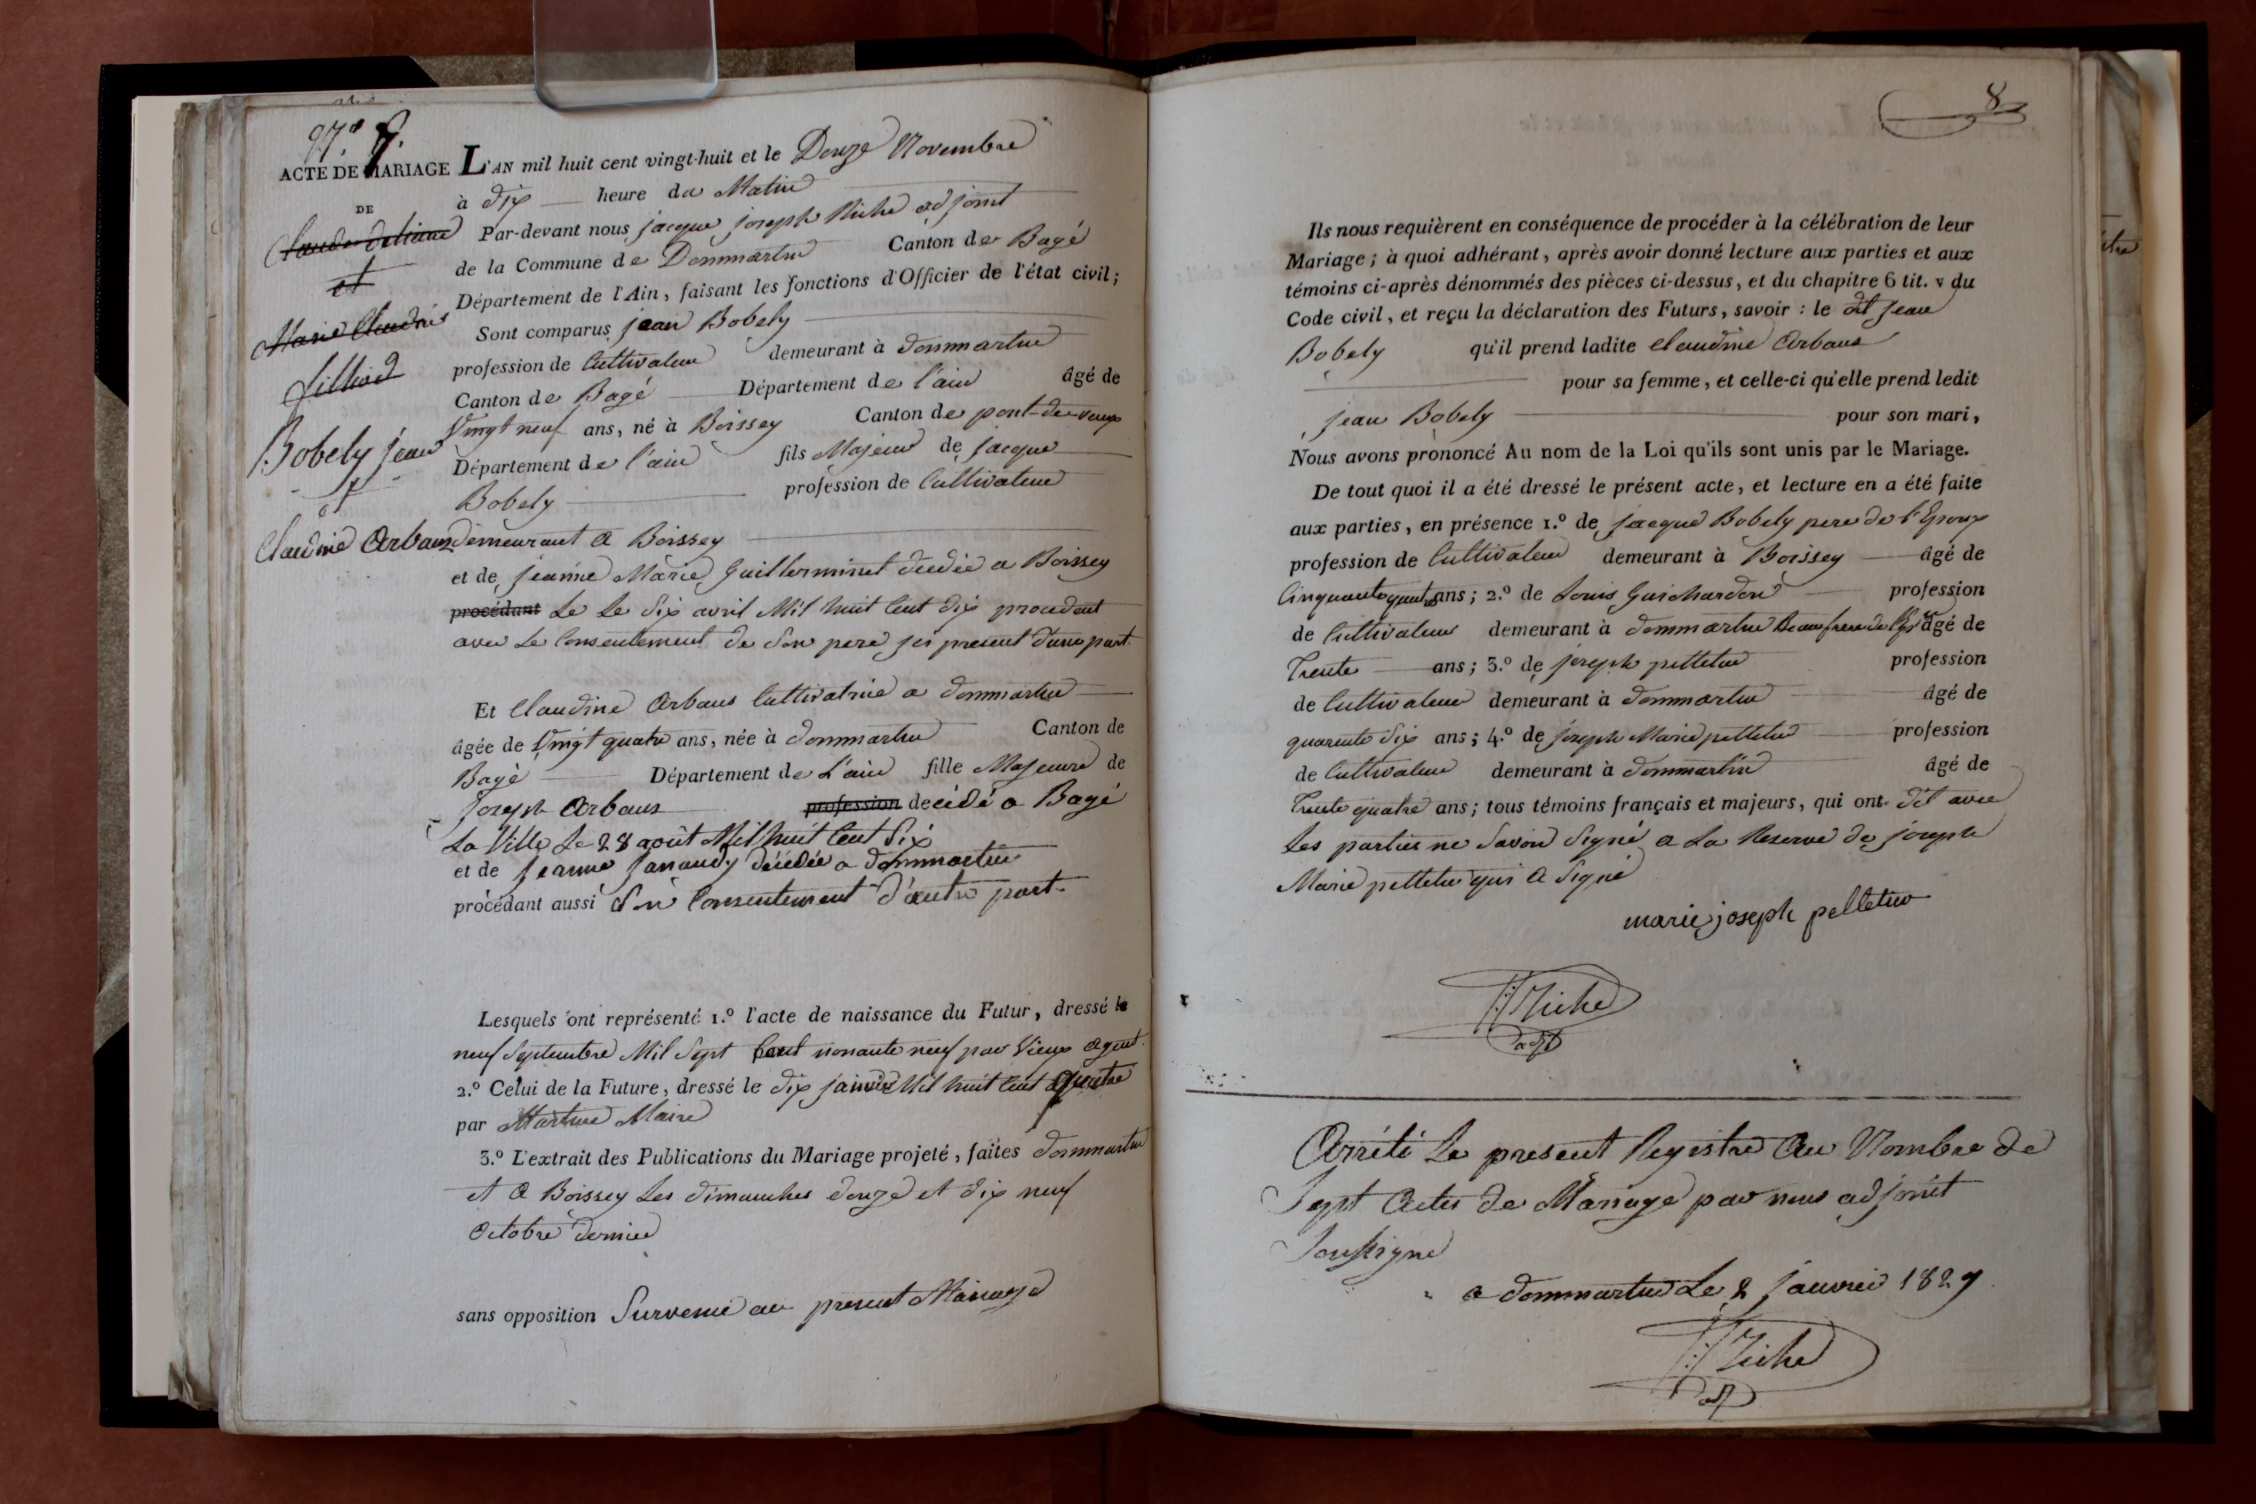 97.e 7.
ACTE DE MARIAGE
DE
Claude deliance
et
Marie Claudine
filliod
Bobely jean
et
Claudine Arbans
L'AN mil huit cent vingt-huit et le Douze Novembre
à dix heure du Matin
Par-devant nous jacque joseph Riche adjoint
de la Commune de Dommartin Canton de Bagé
Département de l'Ain, faisant les fonctions d'Officier de l'état civil;
Sont comparus jean Bobely
profession de Cultivateur demeurant à dommartin
Canton de Bagé Département de l'ain âgé de
Vingt neuf ans, né à Boissey Canton de pont-de-vaux
Département de l'ain fils Majeur de jacque
Bobely profession de Cultivateur
demeurant a Boissey
et de jeanne Marie Guillerminet décédée a Boissey
procédant Le Le dix avril Mil huit Cent dix procedant
avec Le Consentement de Son pere ici present d'une part
Et Claudine Arbans Cultivatrice a dommartin
âgée de Vingt quatre ans, née à dommartin Canton de
Bagé Département de L'ain fille Majeure de
Joseph Arbans profession decédé a Bagé
La Ville Le 28 août Mil huit Cent Six
et de jeanne janaudy décédée a dommartin
procédant aussi d'un Consentement d'autre part.
Lesquels ont représenté 1.º l'acte de naissance du Futur, dressé le
neuf Septembre Mil Sept Cent nonante neuf par Vieux agent.
2.º Celui de la Future, dressé le dix janvier Mil huit Cent quatre
par Martin Maire
3.º L'extrait des Publications du Mariage projeté, faites dommartin
et a Boissey Les dimanches douze et dix neuf
Octobre dernier
sans opposition Survenue au present Mariage
8
Ils nous requièrent en conséquence de procéder à la célébration de leur
Mariage; à quoi adhérant, après avoir donné lecture aux parties et aux
témoins ci-après dénommés des pièces ci-dessus, et du chapitre 6 tit. v du
Code civil, et reçu la déclaration des Futurs, savoir : le dit jean
Bobely qu'il prend ladite Claudine Arbans
pour sa femme, et celle-ci qu'elle prend ledit
jean Bobely pour son mari,
Nous avons prononcé Au nom de la Loi qu'ils sont unis par le Mariage.
De tout quoi il a été dressé le présent acte, et lecture en a été faite
aux parties, en présence 1.º de jacque Bobely pere de l'Epoux
profession de Cultivateur demeurant à Boissey âgé de
Cinquante quatre ans; 2.º de Louis Guichardon profession
de Cultivateur demeurant à dommartin Beaufrere de l'Epx âgé de
Trente ans; 3.º de joseph pelletin profession
de Cultivateur demeurant à dommartin âgé de
quarente dix ans; 4.º de joseph Marie pelletin profession
de Cultivateur demeurant à dommartin âgé de
Trente quatre ans; tous témoins français et majeurs, qui ont dit avec
Les parties ne Savoir Signé a La Reserve de joseph
Marie pelletin qui a Signé
marie joseph pelletin
J:J: Riche
adjt
Arrêté Le present Registre Au Nombre de
Sept Actes de Mariage par nous adjoint
Soussigné
a dommartin Le 2 janvier 1829
J:J: Riche
adjt